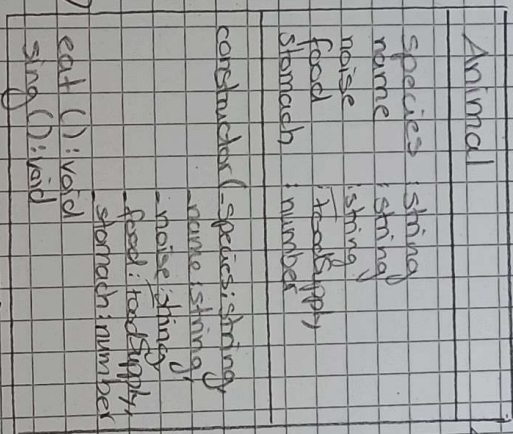 Animal
species : string
name : string
noise : string
food : FoodSupply
stomach : number
constructor(_species:string,
_name:string,
_noise:string,
_food:FoodSupply,
_stomach:number
eat():void
sing():void